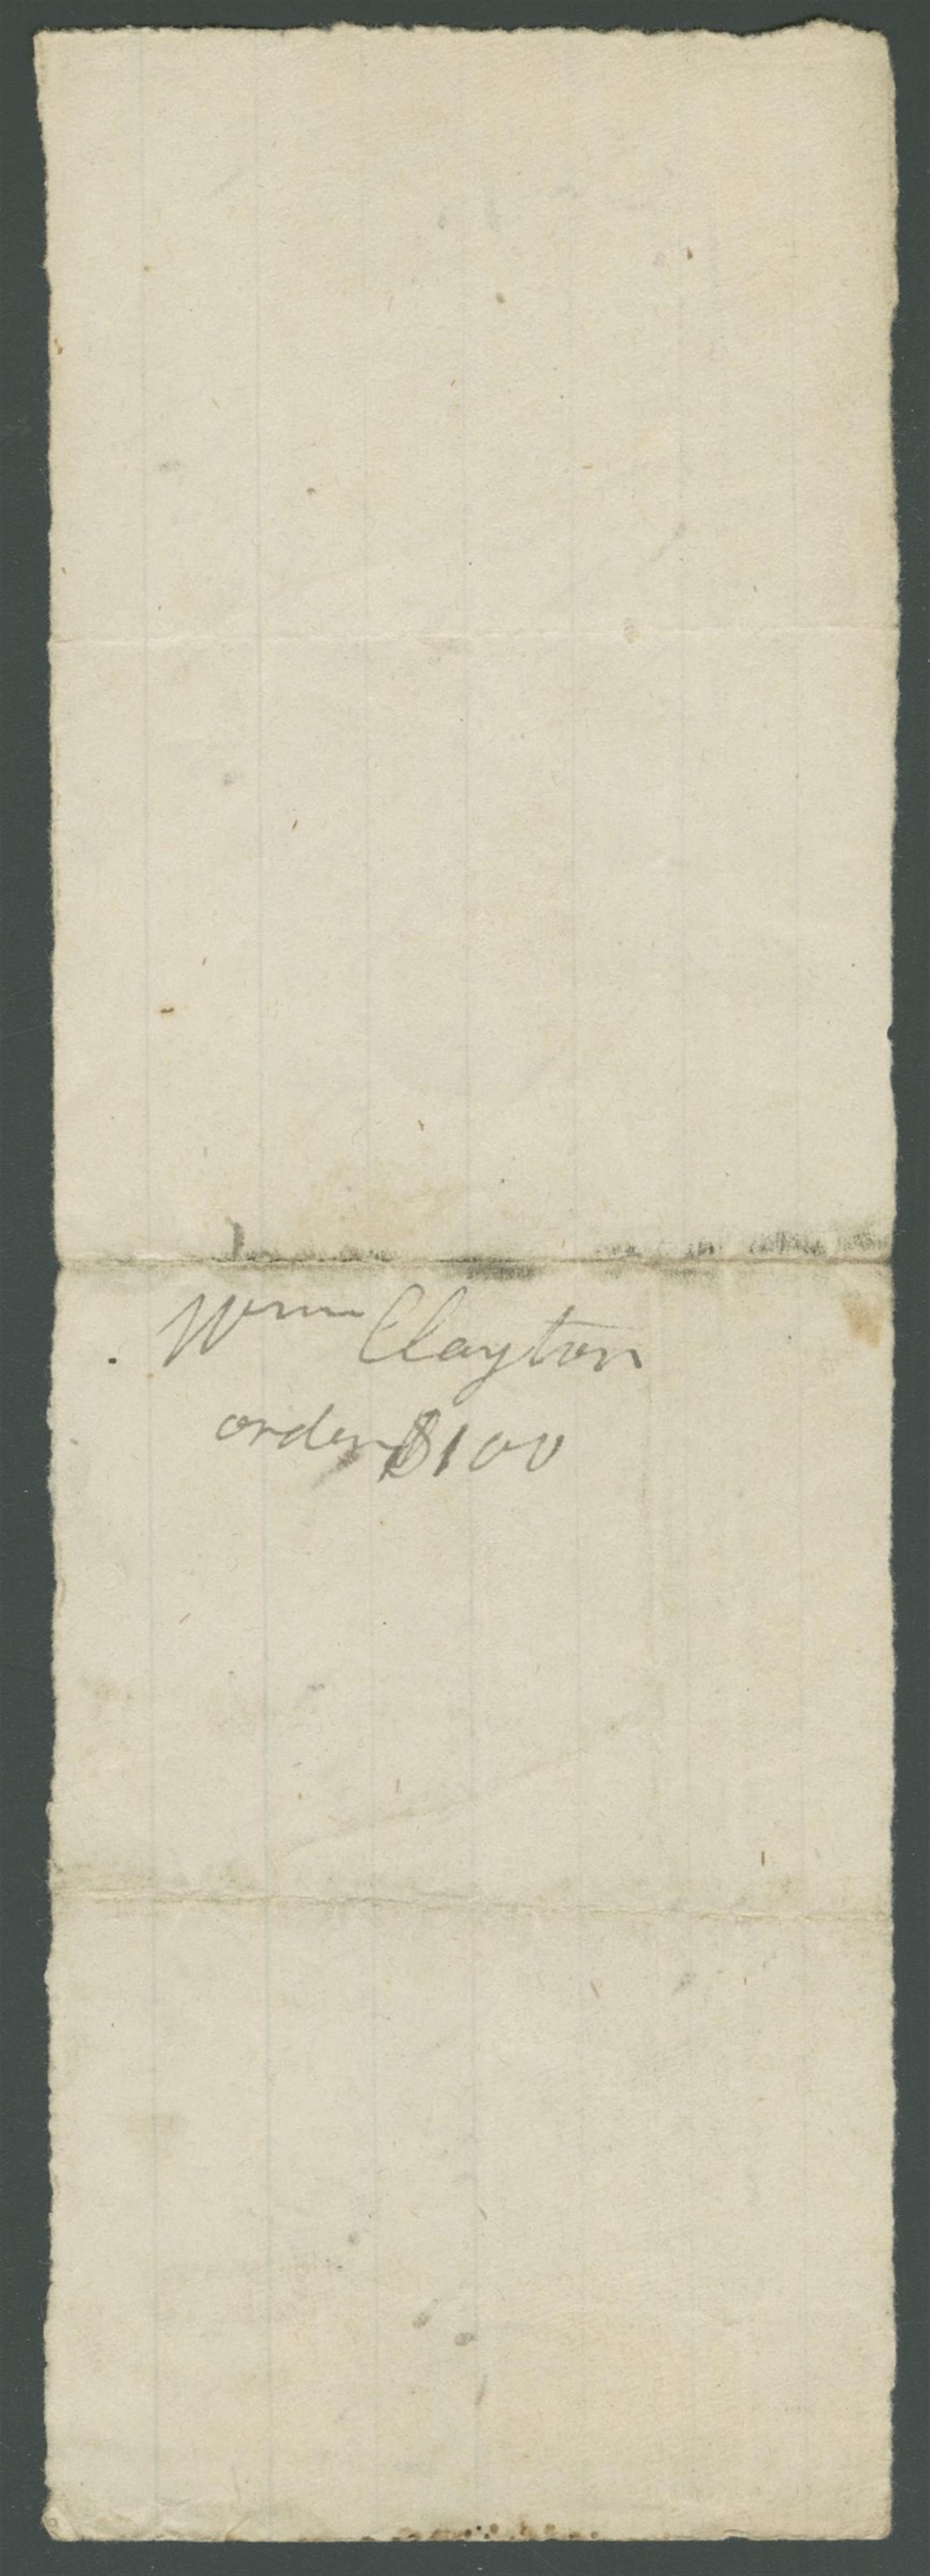 Wm Clayton
order $100